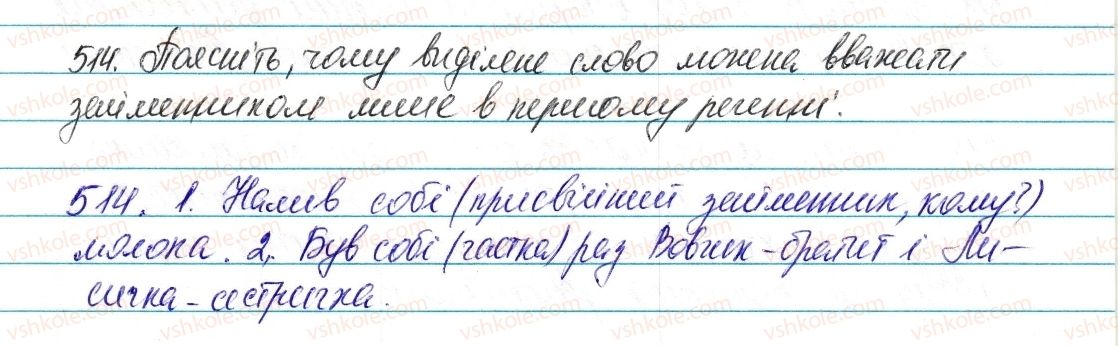 514. Поясніть, чому виділене слово можна вважати
займенником лише в першому реченні.
514. 1. Налив собі (присвійний займенник, кому?)
молока. 2. Був собі (частка) раз Вовчик-братик і Ли-
сичка-сестричка.